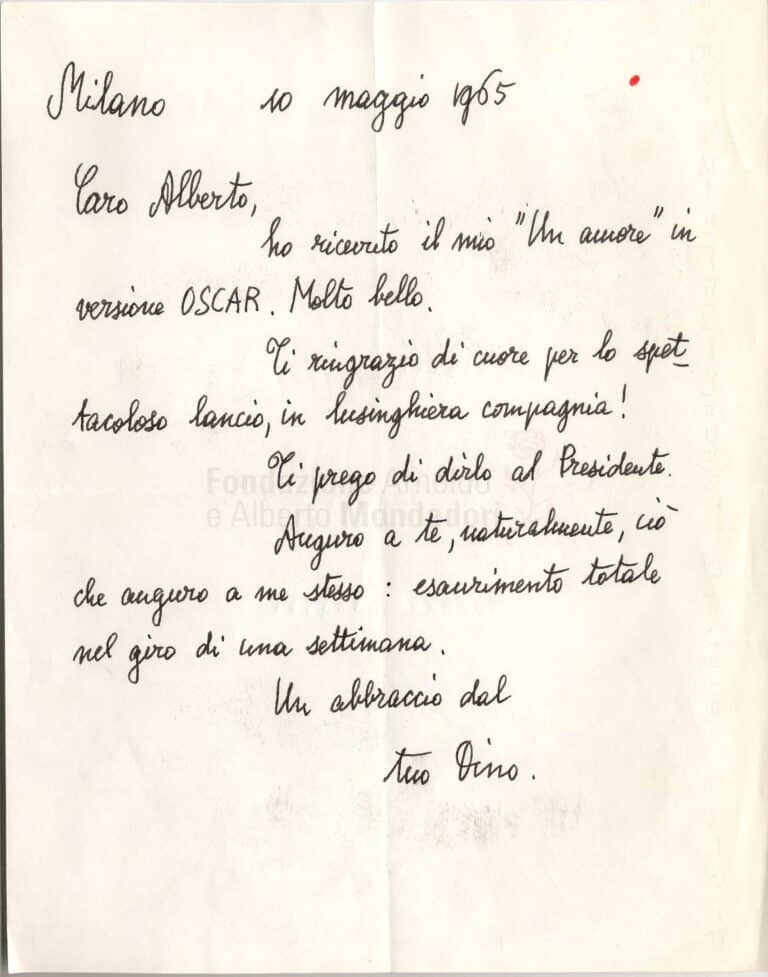 Milano 10 maggio 1965
Caro Alberto,
ho ricevuto il mio "Un amore" in
versione OSCAR. Molto bello.
Ti ringrazio di cuore per lo spet
tacoloso lancio, in lusinghiera compagnia!
Ti prego di dirlo al Presidente.
Fondazione Arnoldo
e Alberto Mondadori
Auguro a te, naturalmente, ciò
che auguro a me stesso : esaurimento totale
nel giro di una settimana.
Un abbraccio dal
tuo Dino.